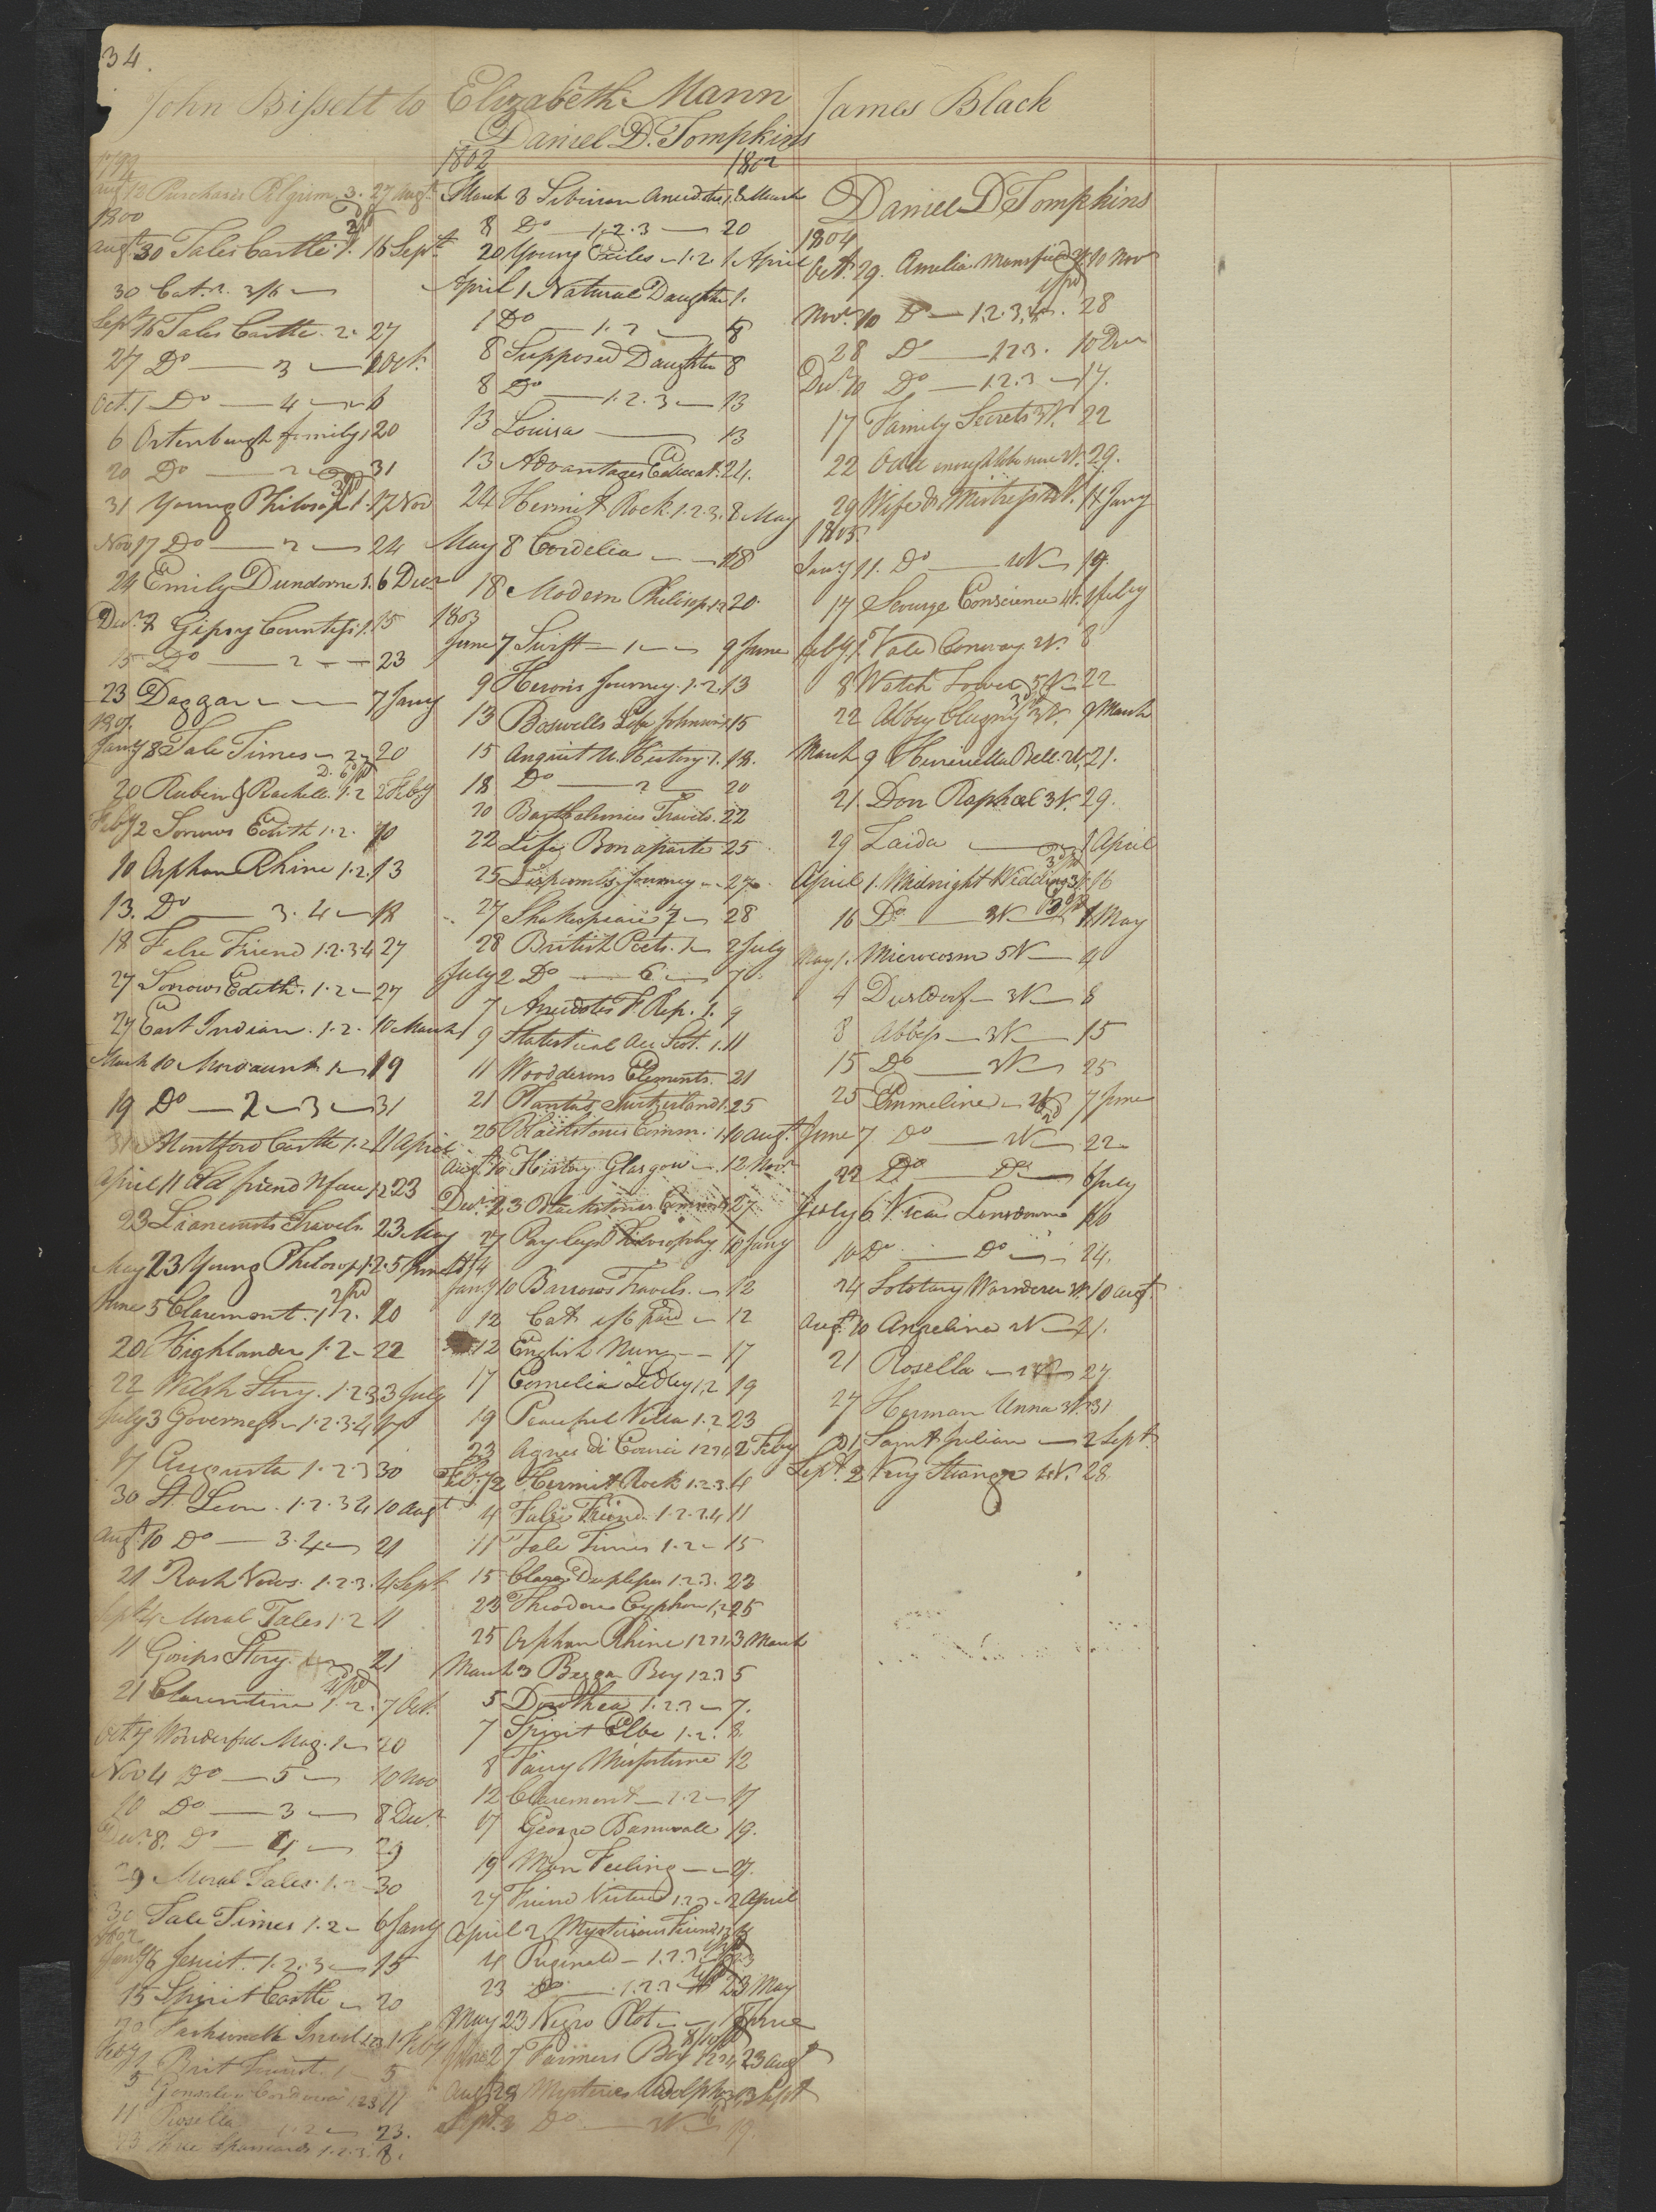 34.
John Bissett to Elizabeth Mann James Black
Daniel D. Tompkins
1799
Augt 12 Purchases Pilgrim 3. 27 Augt
1800
Augt 30 Tales Castle 1. 16 Sept
30 Cat. 3/6
Sept 16 Tales Castle. 2. 27
27 Do — 3 — 1 Oct.
Oct. 1 Do — 4 — 6
6 Ortenburgh family 1 20
20 Do — 2 — 31
31 Young Philosop 1. 17 Nov
Nov 17 Do — 2 — 24
24 Emily Dundorne 1. 6 Decr
Decr 7 Gipsy Countess. 1. 15
15 Do — 2 — 23
23 Daggar — 7 Jany
1801
Jany 8 Tale Times — 2 20
20 Ruben & Rachell. 1.2 2 Feby
Feby 2 Sorrows Edith 1.2. 10
10 Orphan Rhine 1.2. 13
13. Do — 3.4 — 18
18 False Friend 1.2.3.4 27
27 Sorrows Edith. 1.2 — 27
27 East Indian. 1.2. 10 March
March 10 Mordaunt 1 — 19
19 Do — 2 — 3 — 31
31 Montford Castle 1.2 11 April
April 11 Old friend N face 1.2 23
23 Liancourts Travels. 23 May
May 23 Young Philosop 1.2. 5 June
June 5 Claremont. 1.2. 20
20 Highlander 1.2 — 22
22 Welsh Story. 1.2.3 3 July
July 3 Governess — 1.2.3.4 17
17 Augusta 1.2.3 30
30 St. Leon. 1.2.3.4 10 Augt
Augt 10 Do — 3.4 — 21
21 Rash Vows. 1.2.3. 4 Sept
Sept 4 Moral Tales 1.2 11
11 Gosips Story. 21
21 Clarentine 1.2. 7 Oct.
Oct 7 Wonderful Mag. 1 — 20
Nov 4 Do — 5 — 10 Nov
10 Do — 3 — 8 Decr
Decr 8. Do — 4 — 29
29 Moral Tales. 1.2 — 30
30 Tale Times 1.2 — 6 Jany
1802
Jany 6 Jesuit. 1.2.3 — 15
15 Spirit Castle — 20
20 Fashionable Involt 1.2.3 1 Feby
Feby 1 Brit Tourist. 1 — 5
5 Gonsalvo Cordova 1.2.3 11
11 Rosella 1.2 — 23.
23 Three Spaniards 1.2.3. 8.
1802 1802
March 3 Siberian Anecdotes 1. 8 March
8 Do — 1.2.3 — 20
20 Young Exiles — 1.2. 1 April
April 1 Natural Daughter 1.
1 Do — 1.2 — 8
8 Supposed Daughter 8
8 Do — 1.2.3 — 13
13 Louisa — 13
13 Advantages Educat. 24.
24 Hermit Rock. 1.2.3. 8 May
May 8 Cordelia — 18
18 Modern Philosop. 1.2 20.
1803
June 7 Swift — 1 — 9 June
9 Herons Journey. 1.2. 13
13 Boswells Life Johnson 1 15
15 Anquit U. History. 1. 18.
18 Do — 2 — 20
20 Barthelemies Travels. 22
22 Life Bonaparte 25
25 Lipscombs Journey — 27
27 Shakespeare 7 — 28
28 British Poets. 1 — 2 July
July 2 Do — 6 — 7
7 Anecdotes F. Rep. 1. 9
9 Statistical Acc Scot. 1. 11
11 Wooddesons Elements. 21
21 Plantas Switzerland 1. 25
25 Blackstones Comm. 1. 10 Augt.
Augt 10 History Glasgow — 12 Novr
Decr 23 Blackstones Comment 27
27 Payleys Philosophy 10 Jany
1804
Jany 10 Barrows Travels. — 12
12 Cat 1/6 paid — 12
12 English Nun — 17
17 Cornelia Sedley 1.2 19
19 Peaceful Villa 1.2 23
23 Agnes di Courci 1.2.3.4 2 Feby
Feby 2 Hermit Rock 1.2.3. 4
4 False Friend. 1.2.3.4 11
11 Tale Times 1.2 — 15
15 Clara Duplessis 1.2.3. 23
23 Theodore Cyphon 1.2 25
25 Orphan Rhine 1.2.3.4 3 March
March 3 Beggar Boy 1.2.3 5
5 Dorothea 1.2.3 — 7.
7 Spirit Elbe 1.2. 8.
8 Fairy Misfortune 12
12 Claremont — 1.2 — 17
17 George Barnwalle 19.
19 Man Feeling — 27.
27 Friend Virtue 1.2.3 — 2 April
April 2 Mysterious Friend 1.2 4
4 Reginald — 1.2.3 23
23 Do — 1.2.3 23 May
May 23 Negro Plot — 1 June
June 27 Farmers Boy 1.2.3.4 23 Augt
Augt 23 Mysteries Udolpho 3 Sept
Sept. 3 Do — 19.
Daniel D Tompkins
1804
Oct. 29. Amelia Mansfield 10 Nov
Novr. 10 Do — 1.2.3.4. 28
28 Do — 1.2.3. 10 Decr
Decr 10 Do — 1.2.3 — 17.
17 Family Secrets 3 V. 22
22 Odd enough to be sure 2 V. 29.
29 Wife & Mistress 2 V. 11 Jany
1805.
Jany 11. Do — 2 V — 17.
17 Scourge Conscience 4 V. 1 Feby
Feby 1. Vale Conway 2 V. 8
8 Watch Tower 5 V — 22
22 Abbey Clugny 3 V. 9 March
March 9 Henrietta Bell. 2 V. 21.
21 Don Raphael 3 V. 29.
29 Zaida — 1 April
April 1. Midnight Wedding 3 V. 16
16 Do — 3 V — 1 May
May 1. Microcosm 5 V — 4
4 Dusldorf — 3 V — 8
8 Abbess — 3 V — 15
15 Do — 2 V — 25
25 Emmeline — 2 V 7 June
June 7 Do — 2 V — 22
22 Do — Do — 6 July
July 6 Vicar Lansdowne 10
10 Do — Do — 24.
24 Solotary Wanderer 3 V. 10 Augt.
Augt 10 Angelina 2 V — 21.
21 Rosella — 27.
27 Herman Unna 3 V. 31
31 Saint Julian — 2 Sept.
Sept. 2 Very Strange 2 V. 28.